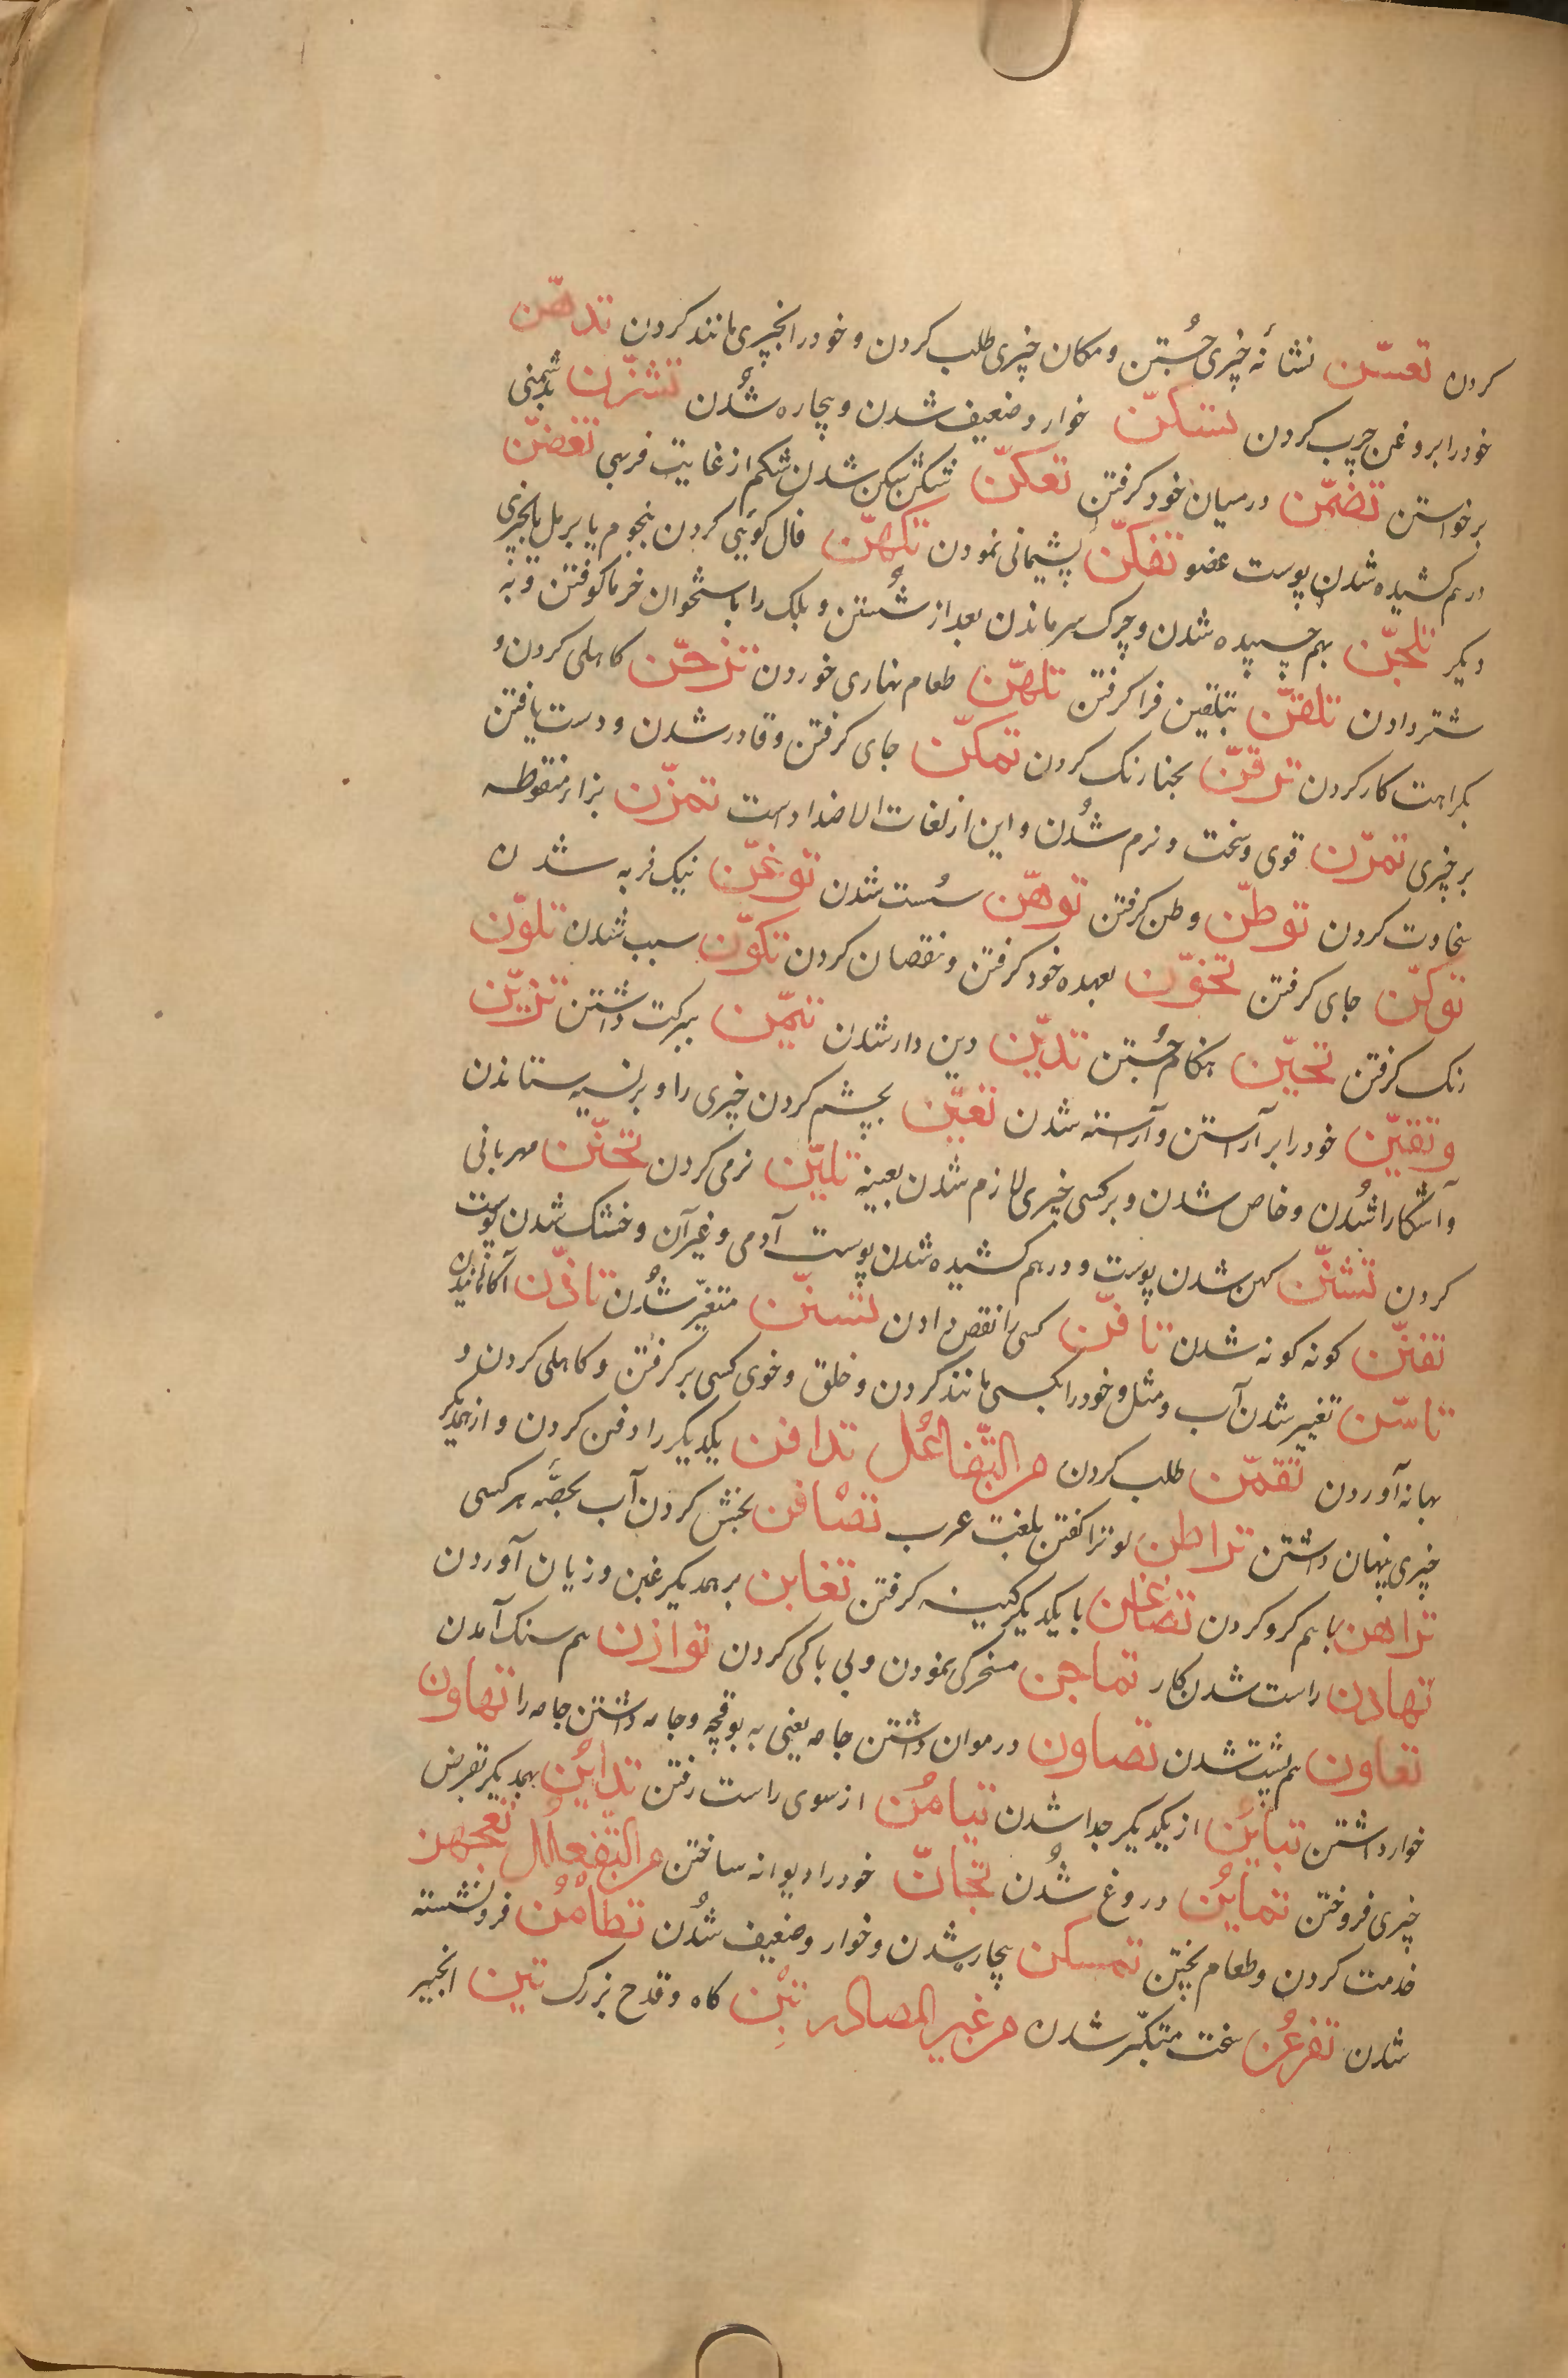 کردن تعسّن نشانهٔ چیزی جُستن و مکان چیزی طلب کردن و خود را بچیزی مانند کردن تدهّن
خود را بروغن چرب کردن تسکّن خوار و ضعیف شدن و بیچاره شُدن تشزّن بدشمنی
برخواستن تضمّن در میان خود کرفتن تعکّن شکن شکن شدن شکم از غایت فربهی تغضّن
در هم کشیده شدن پوست عضو تفکّن پشیمانی نمودن تکهّن فال کویی کردن بنجوم یا برمل یا بچیزی
دیکر تلجّن بهم چسپیده شدن و چرک سر ماندن بعد از شُستن و بلک را با ستخوان خرما کوفتن و به
شتر دادن تلقّن بتلقین فرا کرفتن تلهّن طعام نهاری خوردن تزحّن کاهلی کردن و
بکراهت کار کردن ترقّن بحنا رنک کردن تمکّن جای کرفتن و قادر شدن و دست یافتن
بر چیزی تمرّن قوی و سخت و نرم شُدن و این از لغات الاضداد است تمزّن بزاء منقوطه
سخاوت کردن توطّن وطن کرفتن توهّن سُست شدن توغّن نیک فربه شدن
توکّن جای کرفتن تخوّن بعهده خود کرفتن و نقصان کردن تکوّن سبب شدن تلوّن
رنک کرفتن تحیّن هنکام جُستن تدیّن دین دار شدن تیمّن ببرکت داشتن تزیّن
و تقیّن خود را بر آراستن و آراسته شدن تعیّن بچشم کردن چیزی را و بر نسیه ستاندن
و آشکارا شُدن و خاص شدن و بر کسی چیزی لازم شدن بعینه تلیّن نرمی کردن تحنّن مهربانی
کردن تشنّن کهن شدن پوست و در هم کشیده شدن پوست آدمی و غیر آن و خشک شدن پوست
تفنّن کونه کونه شدن تافّن کسی را نقص دادن تسنّن متغیّر شُدن تاذّن آکاهانیدن
تاسّن تغییر شدن آب و مثل و خود را بکسی مانند کردن و خلق و خوی کسی بر کرفتن و کاهلی کردن و
بهانه آوردن تقمّن طلب کردن من التّفاعُل تدافن یکدیکر را دفن کردن و از همدیکر
چیزی پنهان داشتن تراطن لوترا کفتن بلغت عرب تصافن بخش کردن آب بحصّه هر کسی
تراهن با هم کرو کردن تضاغن با یکدیکر کینه کرفتن تغابن بر همدیکر غبن و زیان آوردن
تهادن راست شدن کار تماجن مسخرکی نمودن و بی باکی کردن توازن هم سنک آمدن
تعاون هم پشت شدن تصاون در موان داشتن جامه یعنی به بوقچه و جامه داشتن جامه را تهاون
خوار داشتن تباین از یکدیکر جدا شدن تیامُن از سوی راست رفتن تداین بهمدیکر بقرض
چیزی فروختن تماین دروغ شُدن تجانّ خود را دیوانه ساختن من التّفعلل تعجهن
خدمت کردن و طعام پختن تمسکن بیچاره شدن و خوار و ضعیف شُدن تطأمُن فرو نشسته
شدن تفرعُن سخت متکبّر شدن من غیر المصادر تبْن کاه و قدح بزرک تین انجیر